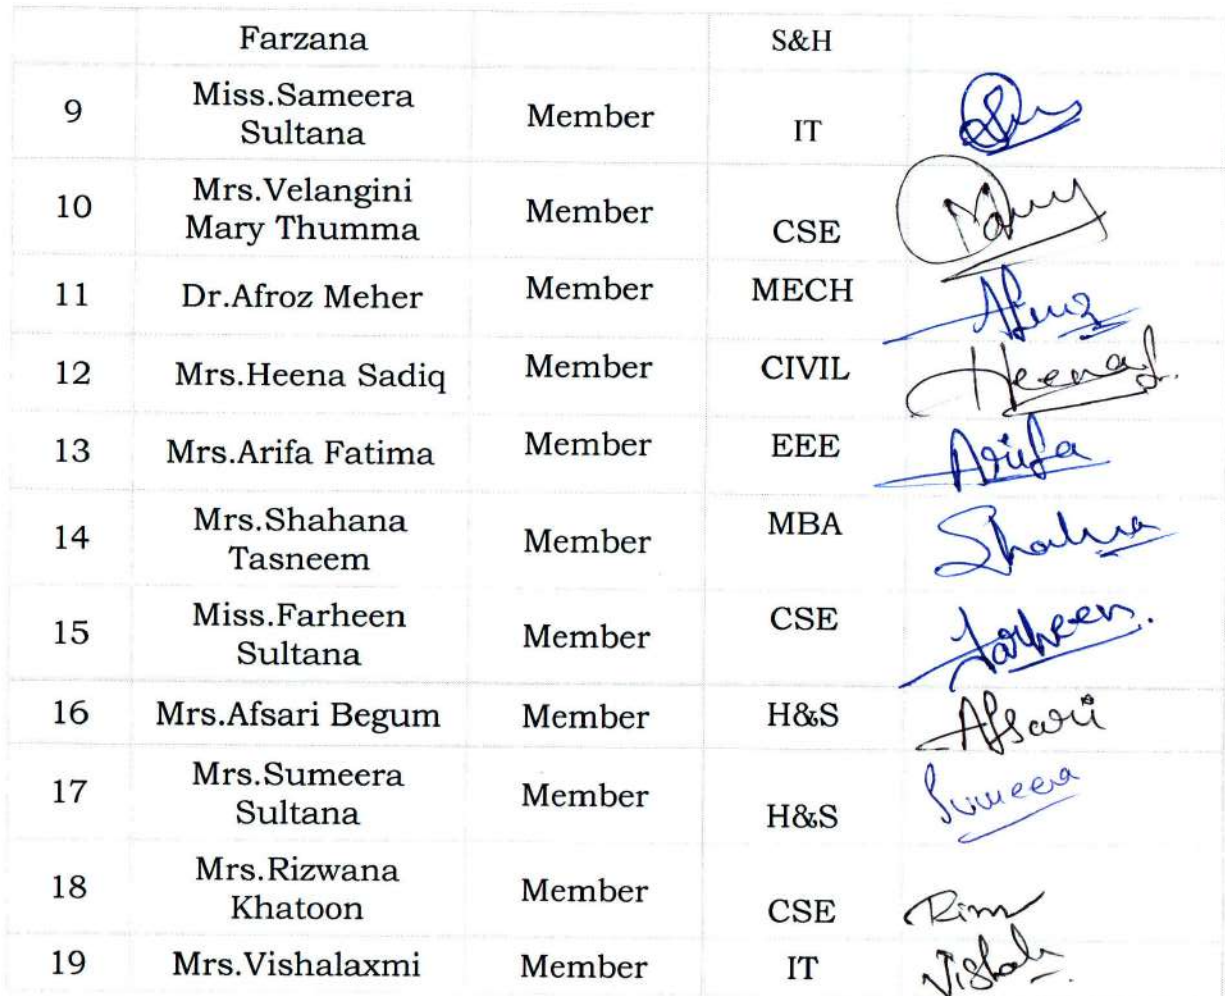 Farzana S&H
9 Miss.Sameera Sultana Member IT
10 Mrs.Velangini Mary Thumma Member CSE Mary
11 Dr.Afroz Meher Member MECH Afroz
12 Mrs.Heena Sadiq Member CIVIL Heena
13 Mrs.Arifa Fatima Member EEE Arifa
14 Mrs.Shahana Tasneem Member MBA
15 Miss.Farheen Sultana Member CSE Farheen.
16 Mrs.Afsari Begum Member H&S Afsari
17 Mrs.Sumeera Sultana Member H&S Sumeera
18 Mrs.Rizwana Khatoon Member CSE
19 Mrs.Vishalaxmi Member IT